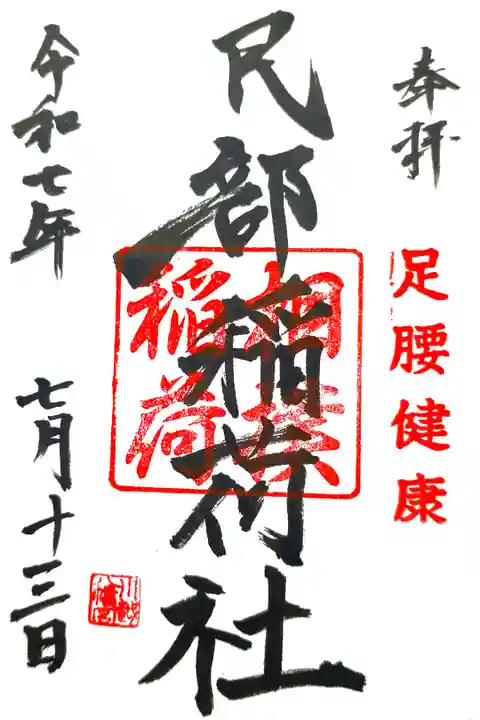 奉拝
足腰健康
民部稲荷社
相撲稲荷
令和七年
七月十三日